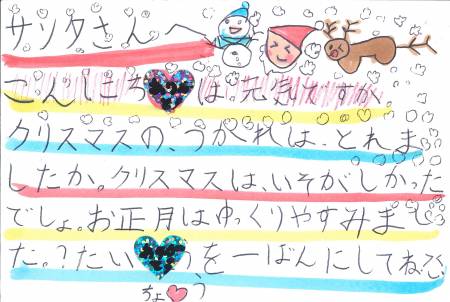 サンタさんへ
こんにちは。元気ですか。
クリスマスの、つかれは、とれま
したか。クリスマスは、いそがしかった
でしょ。お正月はゆっくりやすみまし
た。?たいうを一ばんにしてね。
ちょ